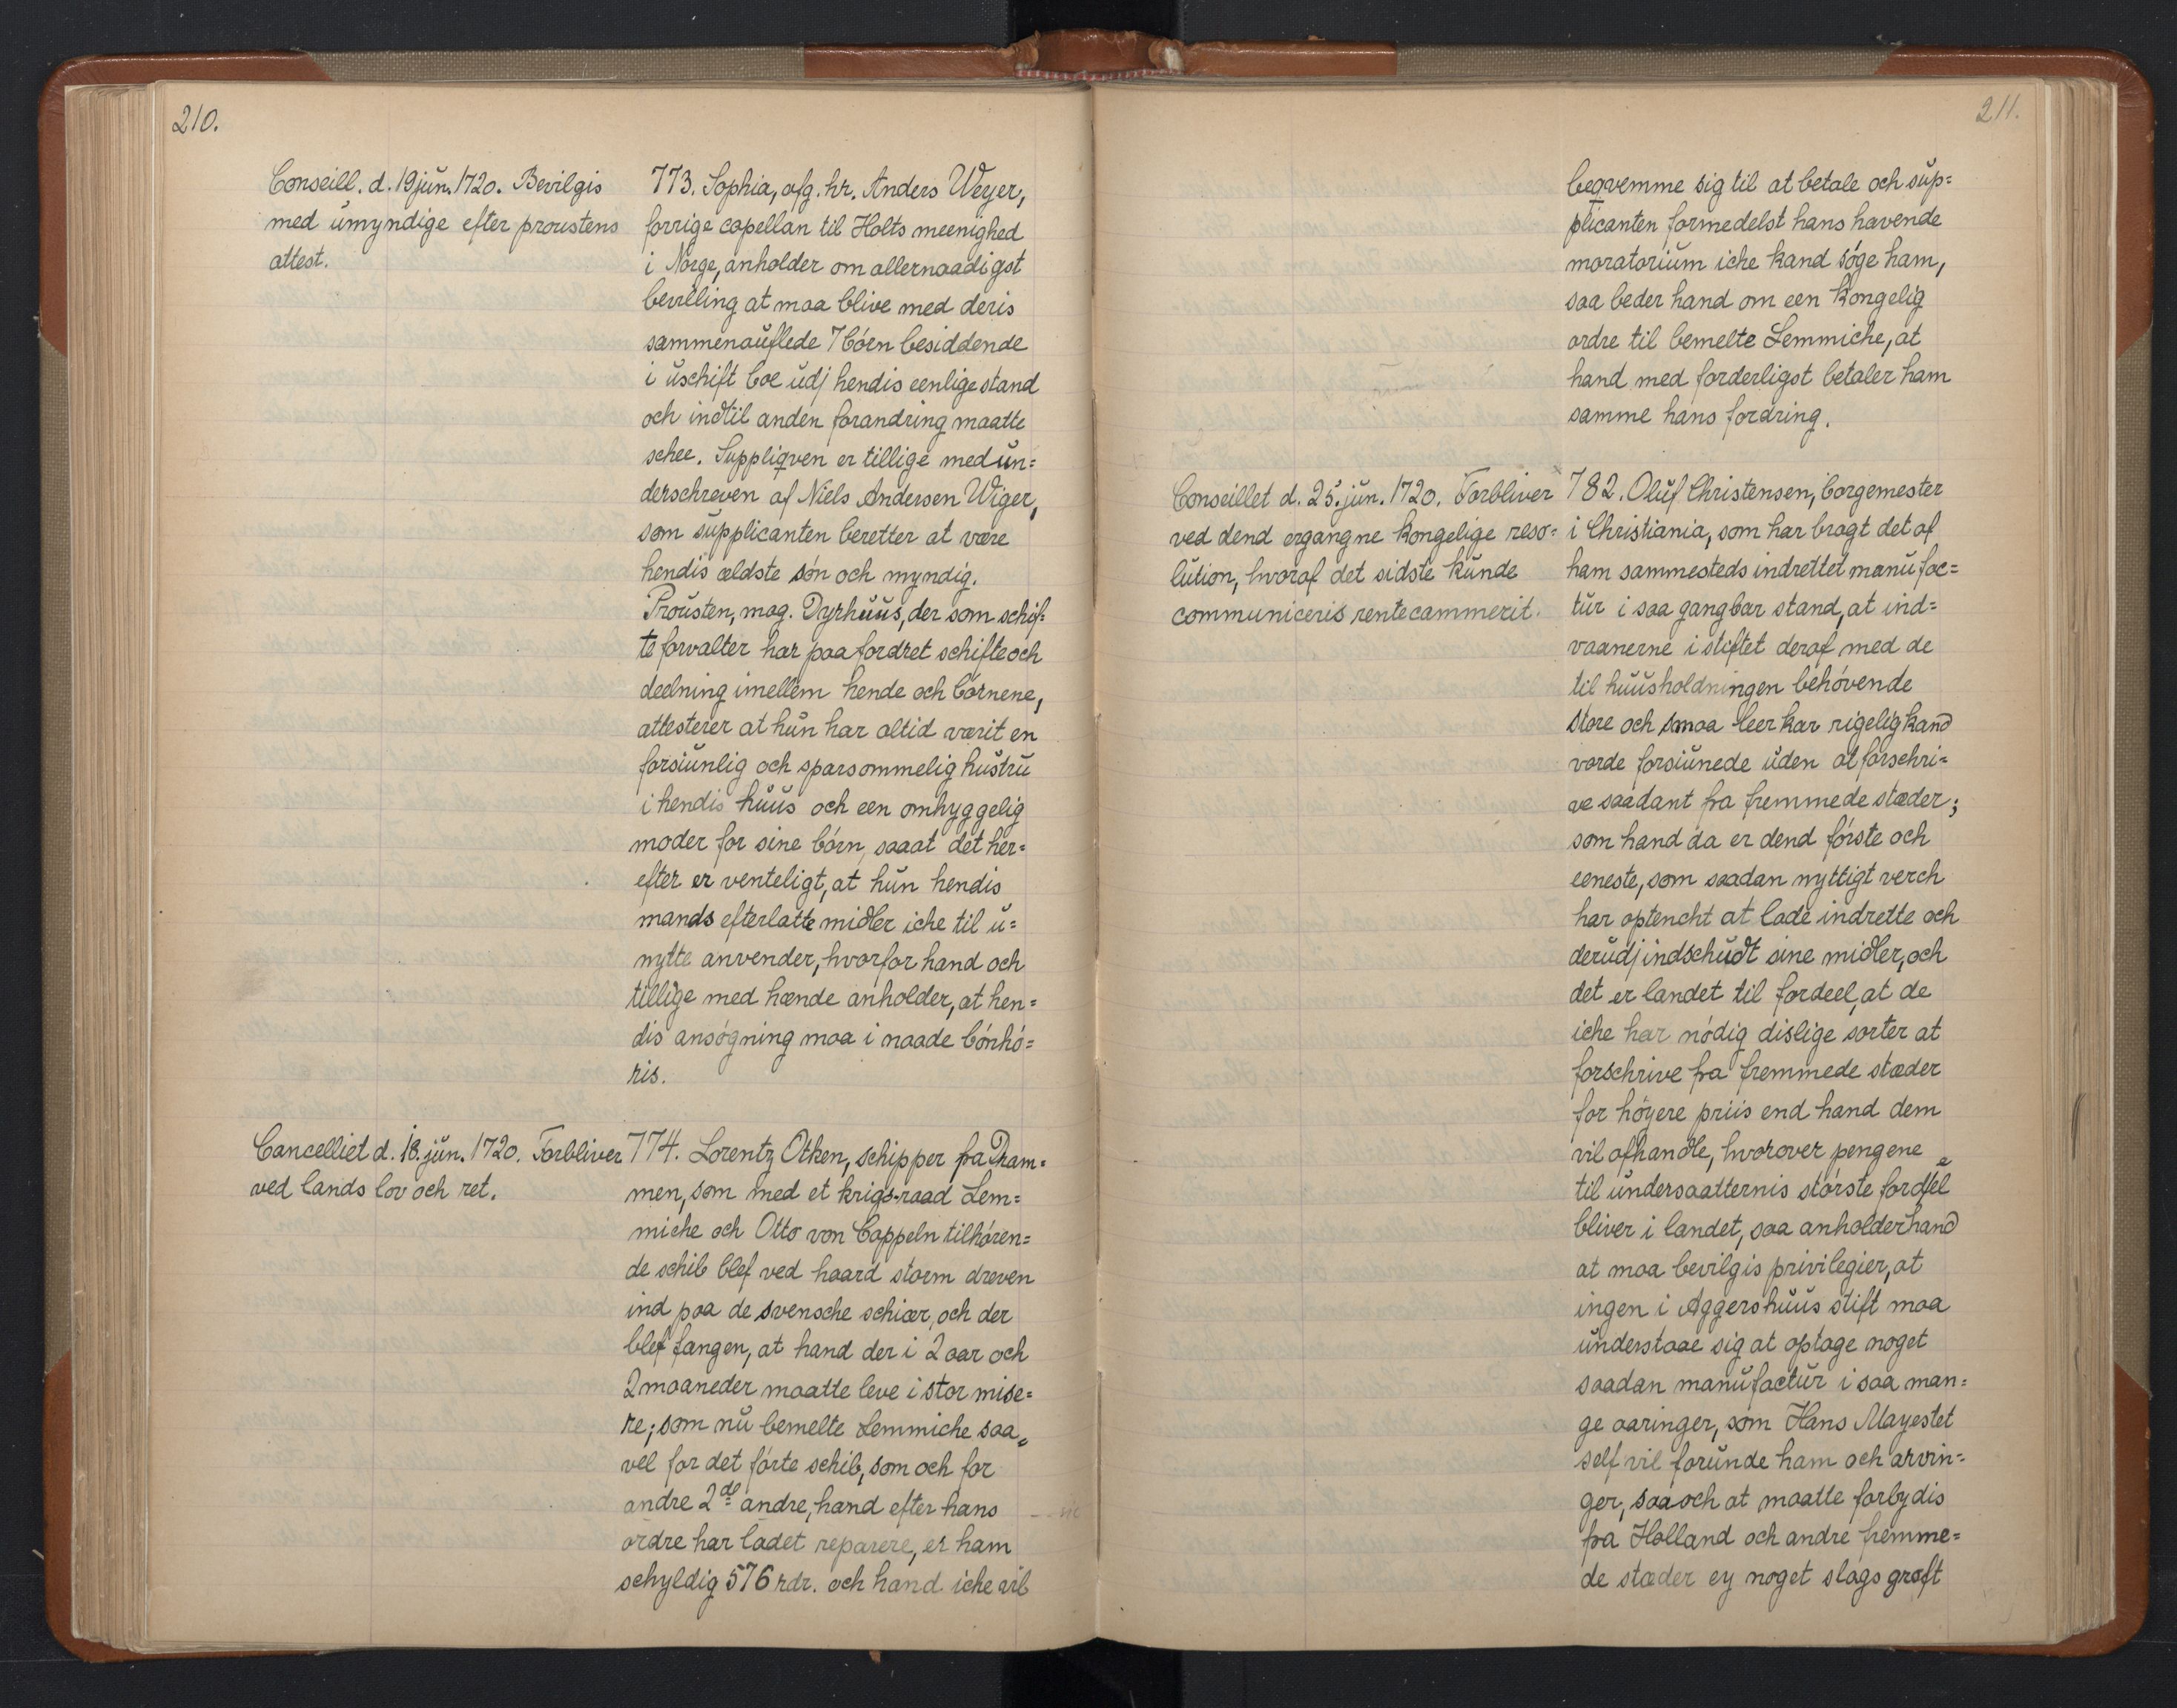 210.
Conseill. d. 19 jun. 1720. Bevilgis
med umyndige efter proustens
attest.
773. Sophia, afg. hr. Anders Weyer,
forrige capellan til Holts meenighed
i Norge, anholder om allernaadigst
bevilling at maa blive med deris
sammenauflede 7 börn besiddende
i uschift boe udj hendis eenlige stand
och indtil anden forandring maatte
schee. Suppliqven er tillige med un=
derschreven af Niels Andersen Wiger,
som supplicanten beretter at være
hendis ældste sön och myndig.
Prousten, mag. Dyrhuus, der som schif=
te forvalter har paafordret schifte och
deelning imellem hende och börnene,
attesterer at hun har altid værit en
forsiunlig och sparsommelig hustru
i hendis huus och een omhyggelig
moder for sine börn, saaat det her=
efter er venteligt, at hun hendis
mands efterlatte midler iche til u=
nytte anvender, hvorfor hand och
tillige med hænde anholder, at hen=
dis ansögning maa i naade bönhö=
ris.
Cancelliet d. 18. jun. 1720. Forbliver
ved lands lov och ret.
774. Lorentz Otken, schipper fra Dram=
men, som med et krigs-raad Lem=
miche och Otto von Cappeln tilhören=
de schib blef ved haard storm dreven
ind paa de svensche schiær, och der
blef fangen, at hand der i 2 aar och
2 maaneder maatte leve i stor mise=
re; som nu bemelte Lemmiche saa=
vel for det förte schib, som och for
andre 2de andre, hand efter hans
ordre har ladet reparere, er ham
schyldig 576 rdr. och hand iche vil
211.
beqvemme sig til at betale och sup=
plicanten formedelst hans havende
moratorium iche kand söge ham,
saa beder hand om een kongelig
ordre til bemelte Lemmiche, at
hand med forderligst betaler ham
samme hans fordring.
Conseillet d. 25. jun. 1720. Forbliver
ved dend ergangne kongelige reso=
lution, hvoraf det sidste kunde
communiceris rentecammerit.
782. Oluf Christensen, borgemester
i Christiania, som har bragt det af
ham sammesteds indrettet manufac=
tur i saa gangbar stand, at ind=
vaanerne i stiftet deraf med de
til huusholdningen behövende
store och smaa leerkar rigelig kand
vorde forsiunede uden at forschri=
ve saadant fra fremmede stæder;
som hand da er dend förste och
eeneste, som saadan nyttigt verch
har optencht at lade indrette och
derudj indschudt sine midler, och
det er landet til fordeel, at de
iche har nödig dislige sorter at
forschrive fra fremmede stæder
for höyere priis end hand dem
vil afhandle, hvorover pengene
til undersaatternis störste fordeel
bliver i landet, saa anholder hand
at maa bevilgis privilegier, at
ingen i Aggershuus stift maa
understaae sig at optage noget
saadan manufactur i saa man=
ge aaringer, som Hans Mayestet
self vil forunde ham och arvin=
ger, saa och at maatte forbydis
fra Holland och andre fremme=
de stæder ey noget slags groft